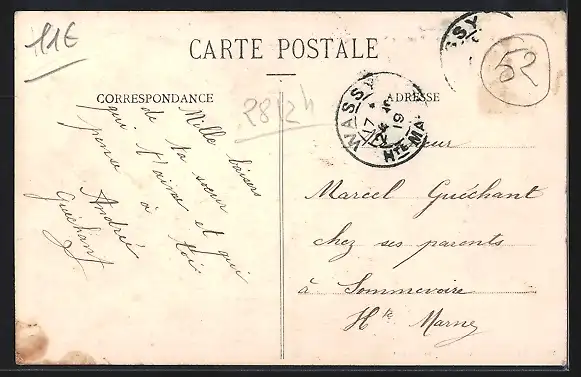 11€
CARTE POSTALE
52
CORRESPONDANCE
ADRESSE
WASSY
Hte MA
19
Mille baisers
de ta soeur
qui t'aime et qui
pense à toi
Andrée
Guéchant
Marcel Guéchant
chez ses parents
à Sommevoire
Hte Marne